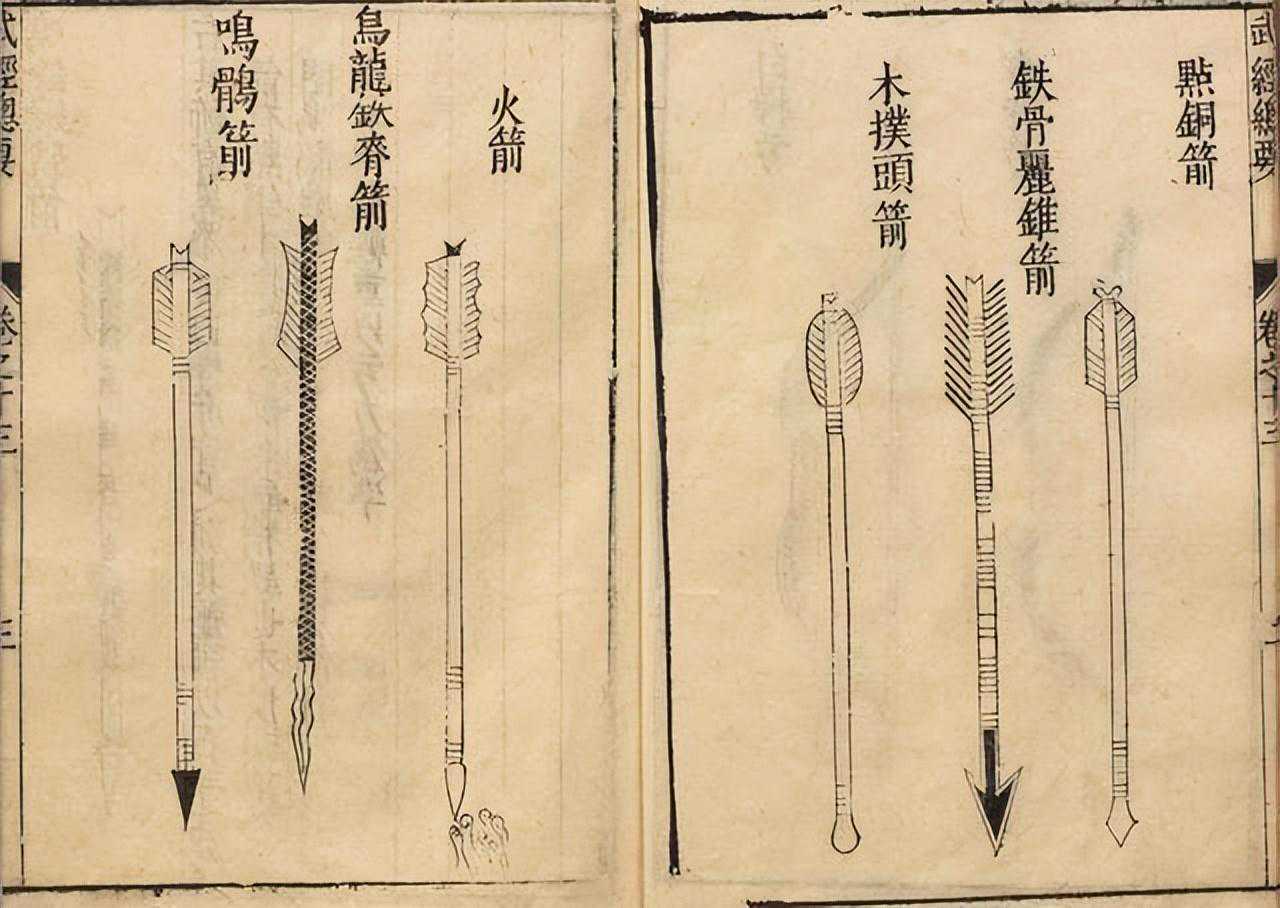 武經總要
卷之十三
點銅箭
鉄骨麗錐箭
木撲頭箭
火箭
烏龍鉄脊箭
鳴鶻箭
武經總要
卷之十三